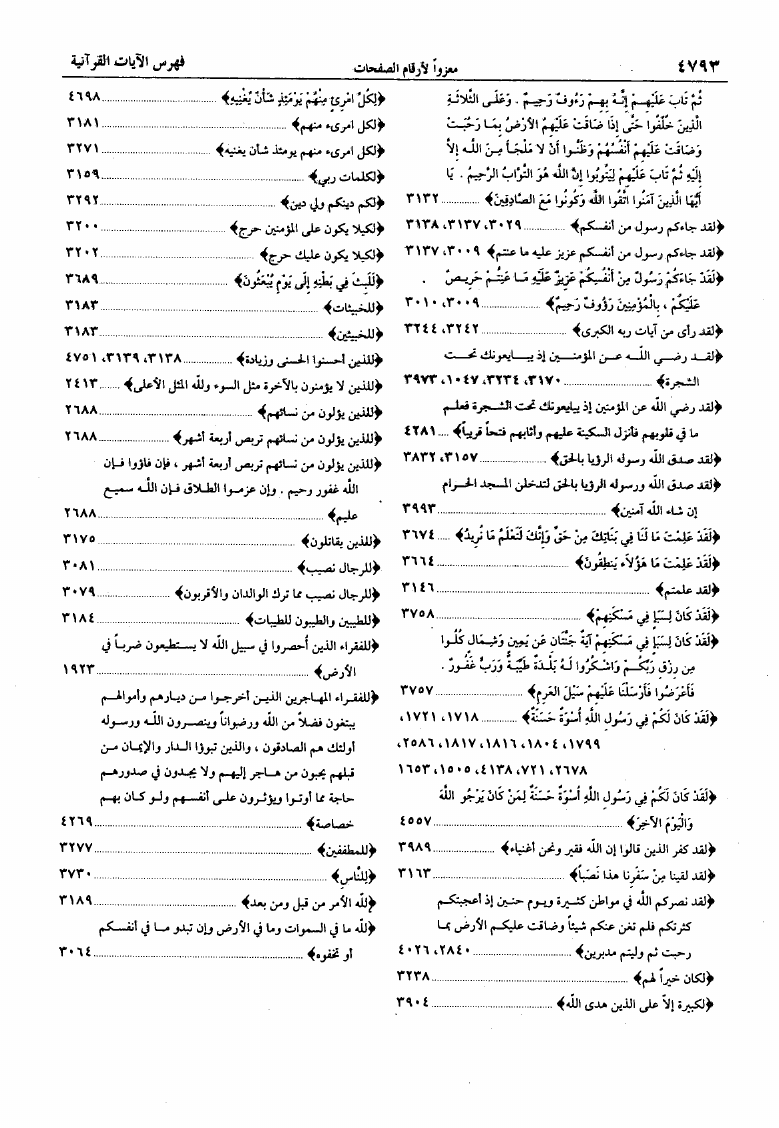 ٤٧٩٣
معزواً لأرقام الصفحات
فهرس الآيات القرآنية
ثُمَّ تَابَ عَلَيْهِمْ إِنَّهُ بِهِمْ رَءُوفٌ رَحِيمٌ . وَعَلَى الثَّلاثَةِ
الَّذِينَ خُلِّفُوا حَتَّى إِذَا ضَاقَتْ عَلَيْهِمُ الأَرْضُ بِمَا رَحُبَتْ
وَضَاقَتْ عَلَيْهِمْ أَنْفُسُهُمْ وَظَنُّوا أَنْ لا مَلْجَأَ مِنَ اللَّهِ إِلاَّ
إِلَيْهِ ثُمَّ تَابَ عَلَيْهِمْ لِيَتُوبُوا إِنَّ اللَّهَ هُوَ التَّوَّابُ الرَّحِيمُ . يَا
أَيُّهَا الَّذِينَ آمَنُوا اتَّقُوا اللَّهَ وَكُونُوا مَعَ الصَّادِقِينَ﴾ ............ ٣١٣٢
﴿لقد جاءكم رسول من أنفسكم﴾ ........ ٣٠٢٩، ٣١٣٧، ٣١٣٨
﴿لقد جاءكم رسول من أنفسكم عزيز عليه ما عنتم﴾ ٣٠٠٩، ٣١٣٧
﴿لَقَدْ جَاءَكُمْ رَسُولٌ مِنْ أَنْفُسِكُمْ عَزِيزٌ عَلَيْهِ مَا عَنِتُّمْ حَرِيصٌ .
عَلَيْكُمْ ، بِالْمُؤْمِنِينَ رَؤُوفٌ رَحِيمٌ﴾ ................ ٣٠٠٩، ٣٠١٠
﴿لقد رأى من آيات ربه الكبرى﴾ ................ ٣٢٤٢، ٣٢٤٤
﴿لقد رضي الله عن المؤمنين إذ يبايعونك تحت
الشجرة﴾ ................ ٣١٧٠، ٣٢٣٤، ١٠٤٧، ٣٩٧٣
﴿لقد رضي الله عن المؤمنين إذ يبايعونك تحت الشجرة فعلم
ما في قلوبهم فأنزل السكينة عليهم وأثابهم فتحاً قريباً﴾ .... ٤٢٨١
﴿لقد صدق الله رسوله الرؤيا بالحق﴾ ................ ٣١٥٧، ٣٨٣٢
﴿لقد صدق الله ورسوله الرؤيا بالحق لتدخلن المسجد الحرام
إن شاء الله آمنين﴾ ................ ٣٩٩٣
﴿لَقَدْ عَلِمْتَ مَا لَنَا فِي بَنَاتِكَ مِنْ حَقٍّ وَإِنَّكَ لَتَعْلَمُ مَا نُرِيدُ﴾ .... ٣٦٧٤
﴿لَقَدْ عَلِمْتَ مَا هَؤُلاَء يَنطِقُونَ﴾ ................ ٣٦٦٤
﴿لقد علمتم﴾ ................ ٣١٤٦
﴿لَقَدْ كَانَ لِسَبَإٍ فِي مَسْكَنِهِمْ﴾ ................ ٣٧٥٨
﴿لَقَدْ كَانَ لِسَبَإٍ فِي مَسْكَنِهِمْ آيَةٌ جَنَّتَانِ عَن يَمِينٍ وَشِمَالٍ كُلُوا
مِن رِزْقِ رَبِّكُمْ وَاشْكُرُوا لَهُ بَلْدَةٌ طَيِّبَةٌ وَرَبٌّ غَفُورٌ .
فَأَعْرَضُوا فَأَرْسَلْنَا عَلَيْهِمْ سَيْلَ العَرِمِ﴾ ................ ٣٧٥٧
﴿لَقَدْ كَانَ لَكُمْ فِي رَسُولِ اللَّهِ أُسْوَةٌ حَسَنَةٌ﴾ ......... ١٧١٨، ١٧٢١،
١٧٩٩، ١٨٠٤، ١٨١٦، ١٨١٧، ٢٥٨٦،
٢٦٧٨، ٧٢١، ٤١٣٨، ١٥٠٥، ١٦٥٣
﴿لَقَدْ كَانَ لَكُمْ فِي رَسُولِ اللَّهِ أُسْوَةٌ حَسَنَةٌ لِمَنْ كَانَ يَرْجُو اللَّهَ
وَالْيَوْمَ الآخِرَ﴾ ................ ٤٥٥٧
﴿لقد كفر الذين قالوا إن الله فقير ونحن أغنياء﴾ ................ ٣٩٨٩
﴿لقد لقينا مِنْ سَفَرِنا هذا نَصَباً﴾ ................ ٣١٦٣
﴿لقد نصركم الله في مواطن كثيرة ويوم حنين إذ أعجبتكم
كثرتكم فلم تغن عنكم شيئاً وضاقت عليكم الأرض بما
رحبت ثم وليتم مدبرين﴾ ................ ٢٨٤٠، ٤٠٢٦
﴿لكان خيراً لهم﴾ ................ ٣٢٣٨
﴿لكبيرة إلاّ على الذين هدى الله﴾ ................ ٣٩٠٤
﴿لِكُلِّ امْرِئٍ مِنْهُمْ يَوْمَئِذٍ شَأْنٌ يُغْنِيهِ﴾ ................ ٤٦٩٨
﴿لكل امرىء منهم﴾ ................ ٣١٨١
﴿لكل امرىء منهم يومئذ شأن يغنيه﴾ ................ ٣٢٧١
﴿لكلمات ربي﴾ ................ ٣١٥٩
﴿لكم دينكم ولي دين﴾ ................ ٣٢٩٢
﴿لكيلا يكون على المؤمنين حرج﴾ ................ ٣٢٠٠
﴿لكيلا يكون عليك حرج﴾ ................ ٣٢٠٢
﴿لَلَبِثَ فِي بَطْنِهِ إِلَى يَوْمِ يُبْعَثُونَ﴾ ................ ٣٦٨٩
﴿للخبيثات﴾ ................ ٣١٨٣
﴿للخبيثين﴾ ................ ٣١٨٣
﴿للذين أحسنوا الحسنى وزيادة﴾ ................ ٣١٣٨، ٣١٣٩، ٤٧٥١
﴿للذين لا يؤمنون بالآخرة مثل السوء ولله المثل الأعلى﴾ ...... ٢٤١٣
﴿للذين يؤلون من نسائهم﴾ ................ ٢٦٨٨
﴿للذين يؤلون من نسائهم تربص أربعة أشهر﴾ ................ ٢٦٨٨
﴿للذين يؤلون من نسائهم تربص أربعة أشهر ، فإن فاؤوا فإن
الله غفور رحيم . وإن عزموا الطلاق فإن الله سميع
عليم﴾ ................ ٢٦٨٨
﴿للذين يقاتلون﴾ ................ ٣١٧٥
﴿للرجال نصيب﴾ ................ ٣٠٨١
﴿للرجال نصيب مما ترك الوالدان والأقربون﴾ ................ ٣٠٧٩
﴿للطيبين والطيبون للطيبات﴾ ................ ٣١٨٤
﴿للفقراء الذين أحصروا في سبيل الله لا يستطيعون ضرباً في
الأرض﴾ ................ ١٩٢٣
﴿للفقراء المهاجرين الذين أخرجوا من ديارهم وأموالهم
يبتغون فضلاً من الله ورضواناً وينصرون الله ورسوله
أولئك هم الصادقون ، والذين تبوؤا الدار والإيمان من
قبلهم يحبون من هاجر إليهم ولا يجدون في صدورهم
حاجة مما أوتوا ويؤثرون على أنفسهم ولو كان بهم
خصاصة﴾ ................ ٤٢٦٩
﴿للمطففين﴾ ................ ٣٢٧٧
﴿لِلنَّاسِ﴾ ................ ٣٧٣٠
﴿لله الأمر من قبل ومن بعد﴾ ................ ٣١٨٩
﴿لله ما في السموات وما في الأرض وإن تبدو ما في أنفسكم
أو تخفوه﴾ ................ ٣٠٦٤